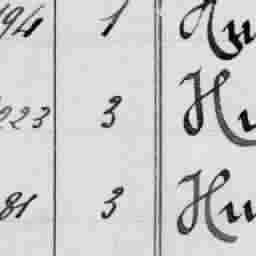 194 1 Hu
223 3 Hu
81 3 Hu